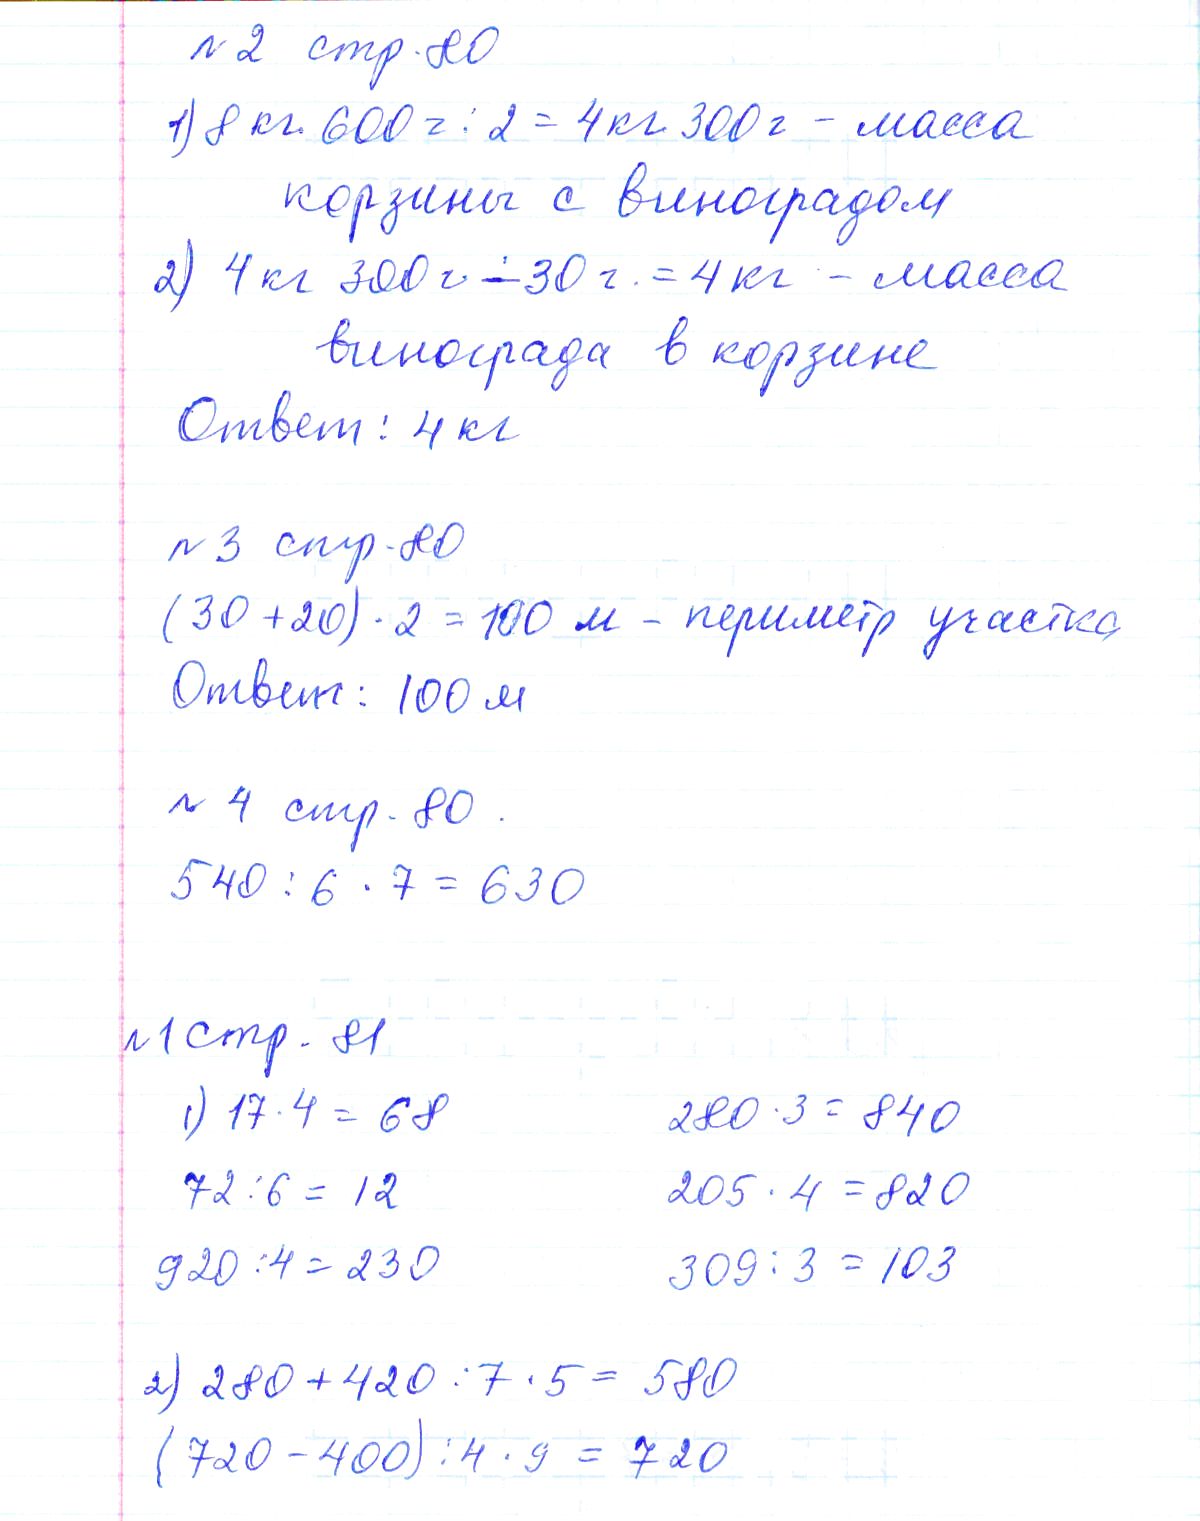 №2 стр. 80
1) 8 кг. 600 г : 2 = 4 кг. 300 г - масса
корзины с виноградом
2) 4 кг 300 г - 30 г. = 4 кг - масса
винограда в корзине
Ответ: 4 кг
№3 стр. 80
(30 + 20) · 2 = 100 м - периметр участка
Ответ: 100 м
№ 4 стр. 80.
540 : 6 · 7 = 630
№1 стр. 81
1) 17 · 4 = 68 280 · 3 = 840
72 : 6 = 12 205 · 4 = 820
920 : 4 = 230 309 : 3 = 103
2) 280 + 420 : 7 · 5 = 580
(720 - 400) : 4 · 9 = 720